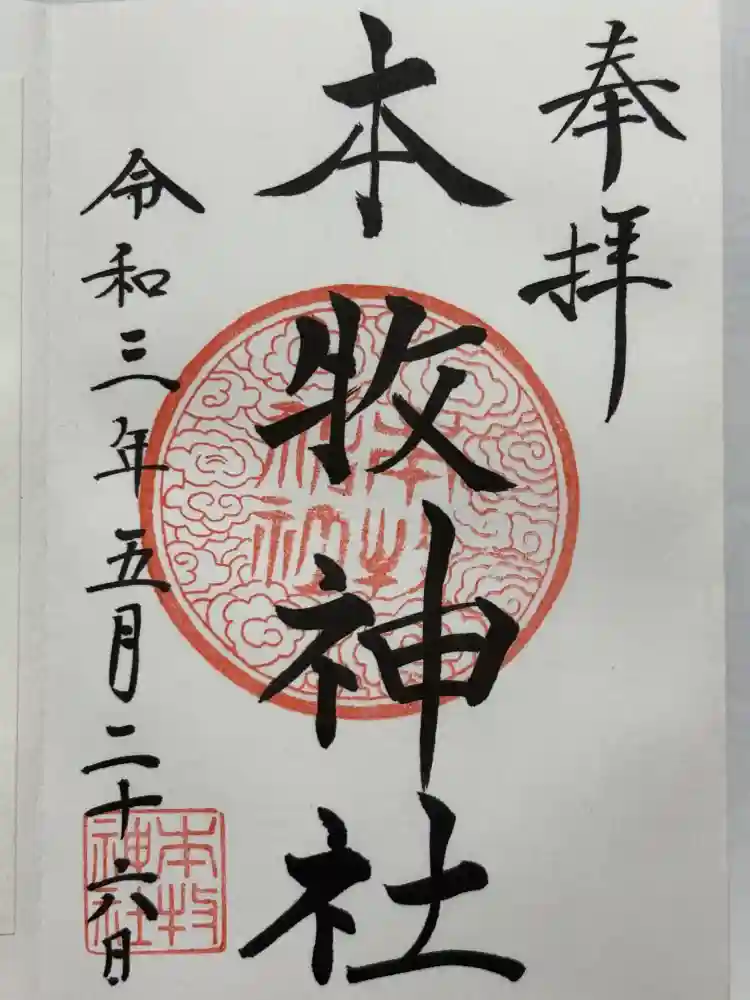 奉拝
本牧神社
令和三年五月二十六日
本牧
神社
本牧
神社